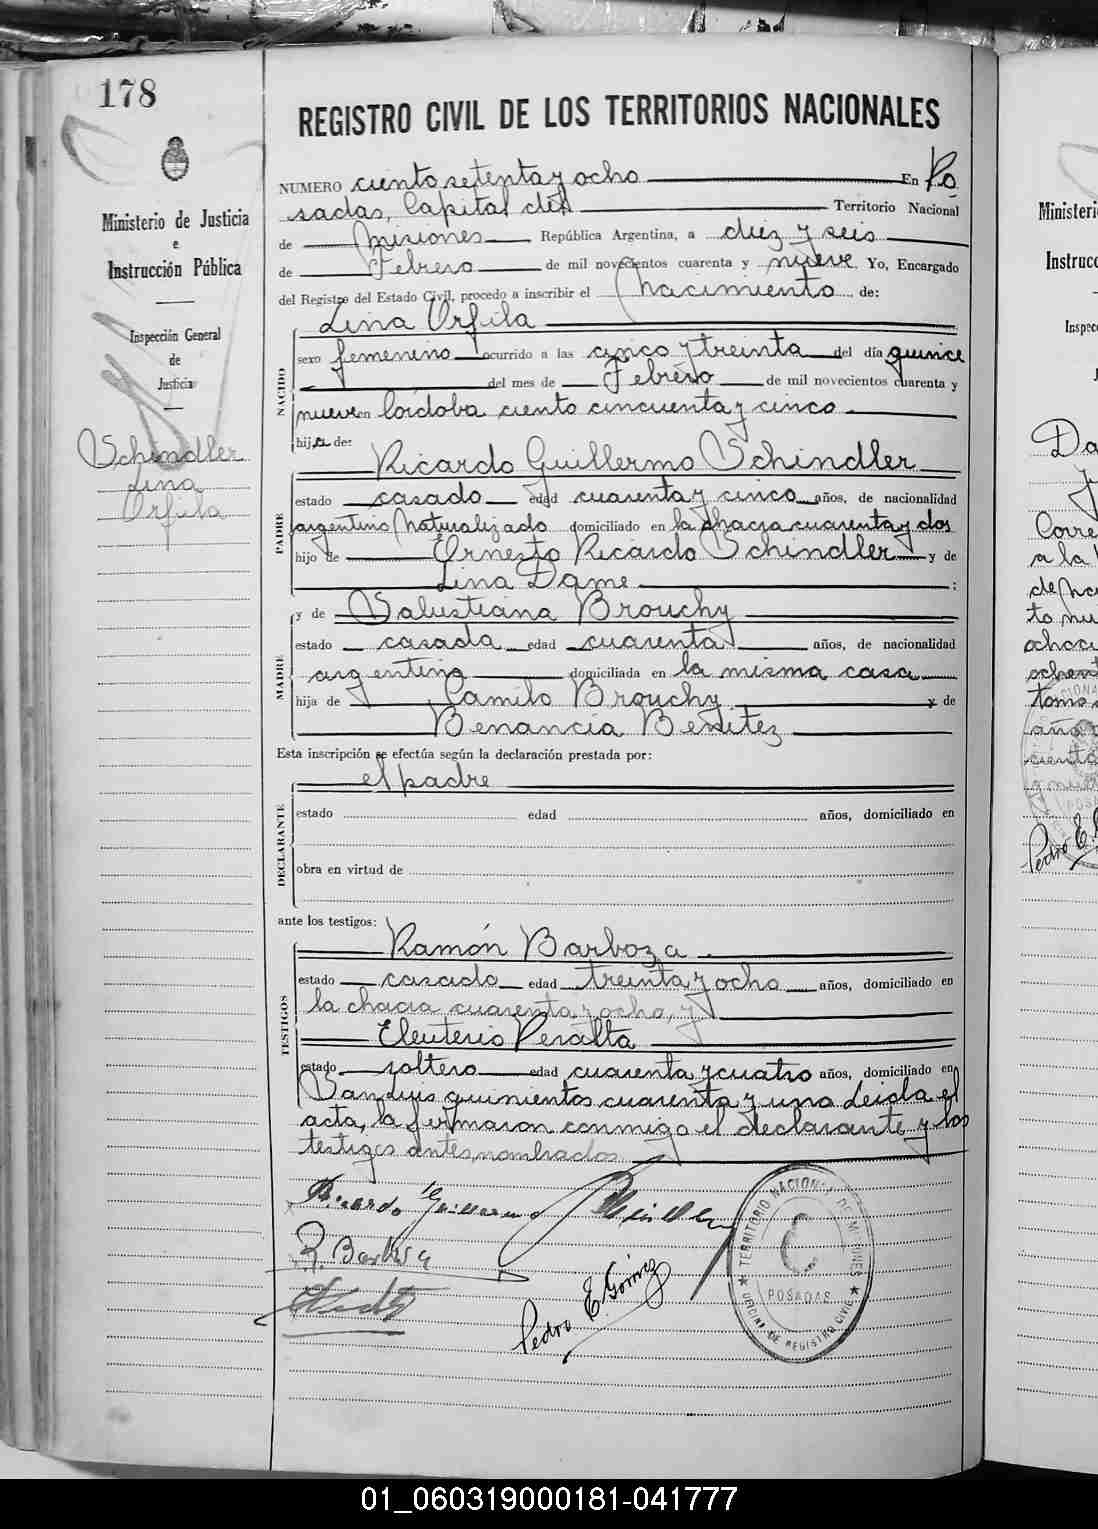 178
Ministerio de Justicia
e
Instrucción Pública
Inspección General
de
Justicia
Schindler
Lina
Orfila
REGISTRO CIVIL DE LOS TERRITORIOS NACIONALES
NUMERO ciento setenta y ocho En Po
sadas, Capital del Territorio Nacional
de Misiones República Argentina, a diez y seis
de Febrero de mil novecientos cuarenta y nueve Yo, Encargado
del Registro del Estado Civil, procedo a inscribir el nacimiento de:
NACIDO
Lina Orfila
sexo femenino ocurrido a las cinco y treinta del día quince
del mes de Febrero de mil novecientos cuarenta y
nueve en Córdoba ciento cincuenta y cinco
hija de:
PADRE
Ricardo Guillermo Schindler
estado casado edad cuarenta y cinco años, de nacionalidad
argentino naturalizado domiciliado en la chacra cuarenta y dos
hijo de Ernesto Ricardo Schindler y de
Lina Dame ;
MADRE
y de Salustiana Brouchy
estado casada edad cuarenta años, de nacionalidad
argentina domiciliada en la misma casa
hija de Camilo Brouchy y de
Benancia Benitez
Esta inscripción se efectúa según la declaración prestada por:
DECLARANTE
el padre
estado edad años, domiciliado en
obra en virtud de
ante los testigos:
TESTIGOS
Ramón Barboza
estado casado edad treinta y ocho años, domiciliado en
la chacra cuarenta y ocho, y
Eleuterio Peralta
estado soltero edad cuarenta y cuatro años, domiciliado en
San Luis quinientos cuarenta y uno Leida el
acta, la firmaron conmigo el declarante y los
testigos antes nombrados
Ricardo Guillermo Schindler
R. Barboza
Pedro E. Gómez
TERRITORIO NACIONAL DE MISIONES
POSADAS
OFICINA DE REGISTRO CIVIL
Ministeri
Instrucc
Inspec
Da
y
Corre
a la
de
to nu
ochoci
tomo
año
ciento
Pedro E.
01_060319000181-041777